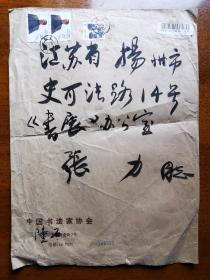 江苏省扬州市
史可法路14号
《书展》办公室
张力
中国书法家协会